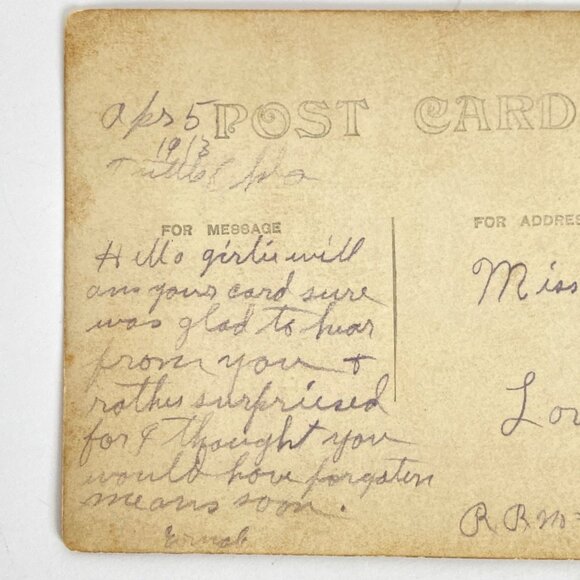 Apr 5 POST CARD
1913
FOR MESSAGE
FOR ADDRES
Hello girlie will
ans your card sure
was glad to hear
from you +
rather surpriesed
for I thought you
would have forgoten
me ans soon.
Miss
Lov
R R No